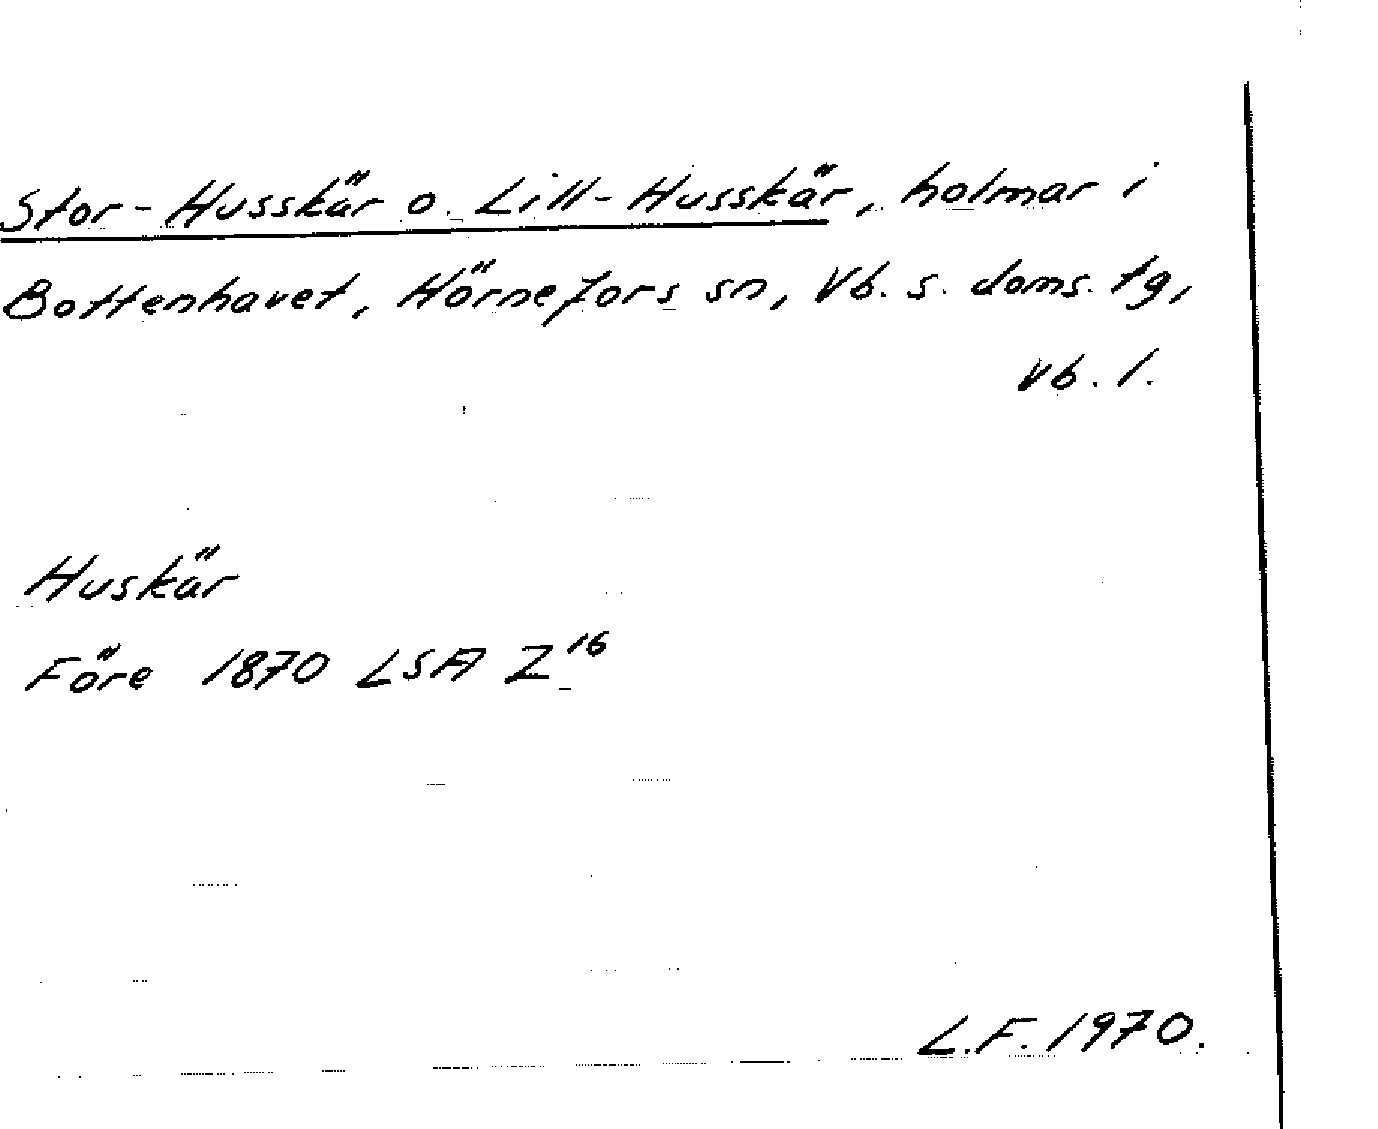 Stor-Husskär o. Lill-Husskär, holmar i
Bottenhavet, Hörnefors sn, Vb. s. doms. tg,
Vb. l.
Huskär
Före 1870 LSA Z16
L.F. 1970.